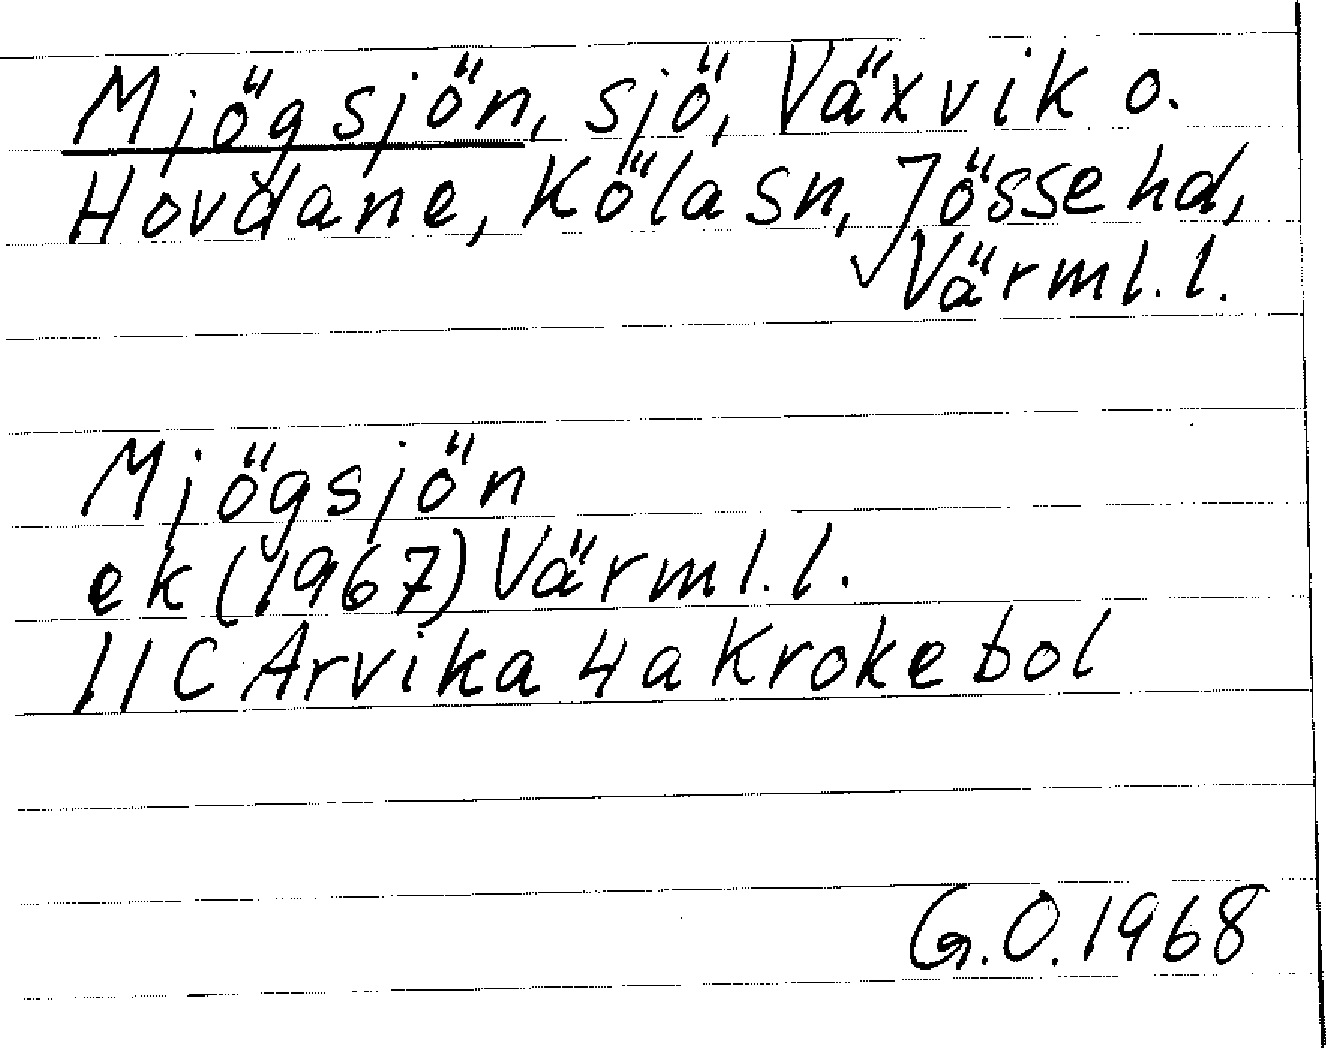 Mjögsjön, sjö, Växvik o.
Hovdane, Köla sn, Jösse hd,
Värml. l.
Mjögsjön
ek (1967) Värml. l.
11C Arvika 4a Krokebol
G.O. 1968